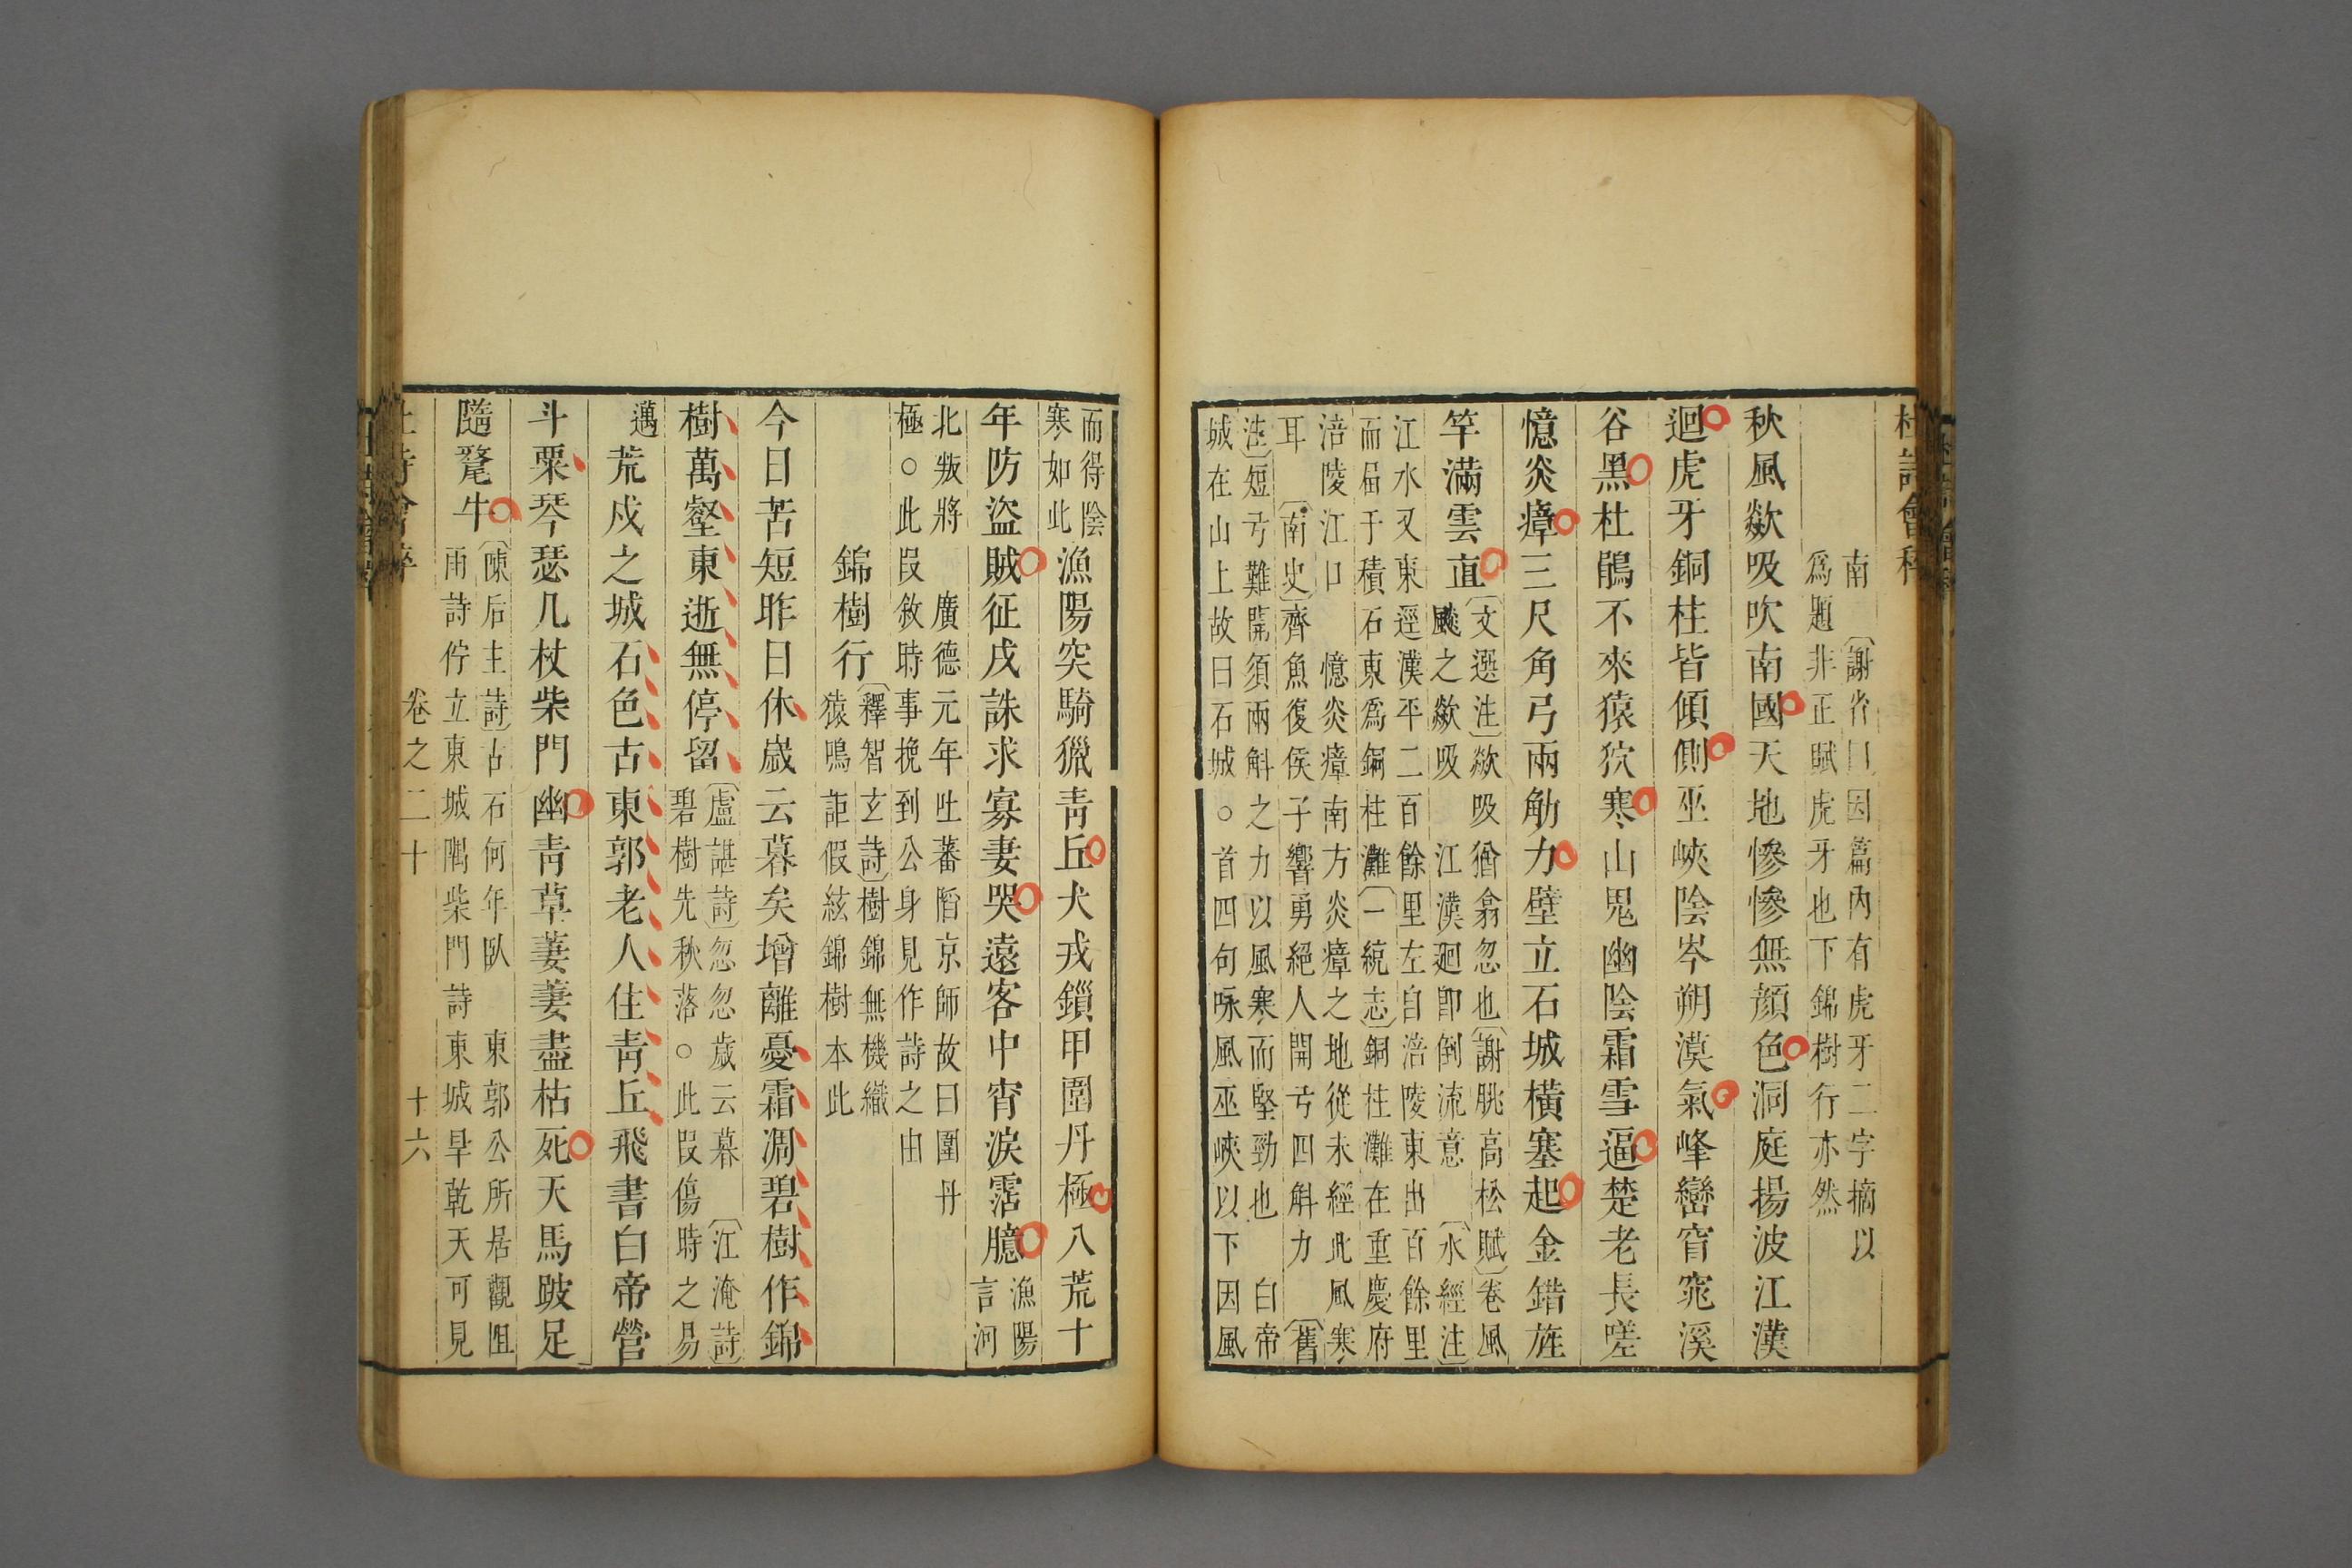 杜詩會稡
南〔謝省曰〕因篇內有虎牙二字摘以
爲題非正賦虎牙也下錦樹行亦然
秋風欻吸吹南國天地慘慘無顔色洞庭揚波江漢
迴虎牙銅柱皆傾側巫峽陰岑朔漠氣峰巒窅窕溪
谷黑杜鵑不來猿狖寒山鬼幽陰霜雪逼楚老長嗟
憶炎瘴三尺角弓兩觓力壁立石城橫塞起金錯旌
竿滿雲直
〔文選注〕欻吸猶翕忽也〔謝朓高松賦〕卷風
飈之欻吸　江漢廻卽倒流意　〔水經注〕
江水又東逕漢平二百餘里左自涪陵東出百餘里
而屆于積石東爲銅柱灘〔一統志〕銅柱灘在重慶府
涪陵江口　憶炎瘴南方炎瘴之地從未經此風寒
耳　〔南史〕齊魚復侯子響勇絕人開弓四斛力　〔舊
注〕短弓難開須兩斛之力以風寒而堅勁也　白帝
城在山上故曰石城○首四句咏風巫峽以下因風
而得陰
寒如此
漁陽突騎獵青丘犬戎鎖甲圍丹極八荒十
年防盜賊征戍誅求寡妻哭遠客中宵淚霑臆
漁陽
言河
北叛將　廣德元年吐蕃陷京師故曰圍丹
極○此叚敘時事挽到公身見作詩之由
錦樹行
〔釋智玄詩〕樹錦無機織
猿鳴詎假絃錦樹本此
今日苦短昨日休歲云暮矣增離憂霜凋碧樹作錦
樹萬壑東逝無停留
〔盧諶詩〕忽忽歲云暮　〔江淹詩〕
碧樹先秋落○此叚傷時之易
邁
荒戍之城石色古東郭老人住青丘飛書白帝營
斗粟琴瑟几杖柴門幽青草萋萋盡枯死天馬跛足
隨氂牛
〔陳后主詩〕古石何年臥　東郭公所居觀阻
雨詩佇立東城隅柴門詩東城旱乾天可見
卷之二十　十六